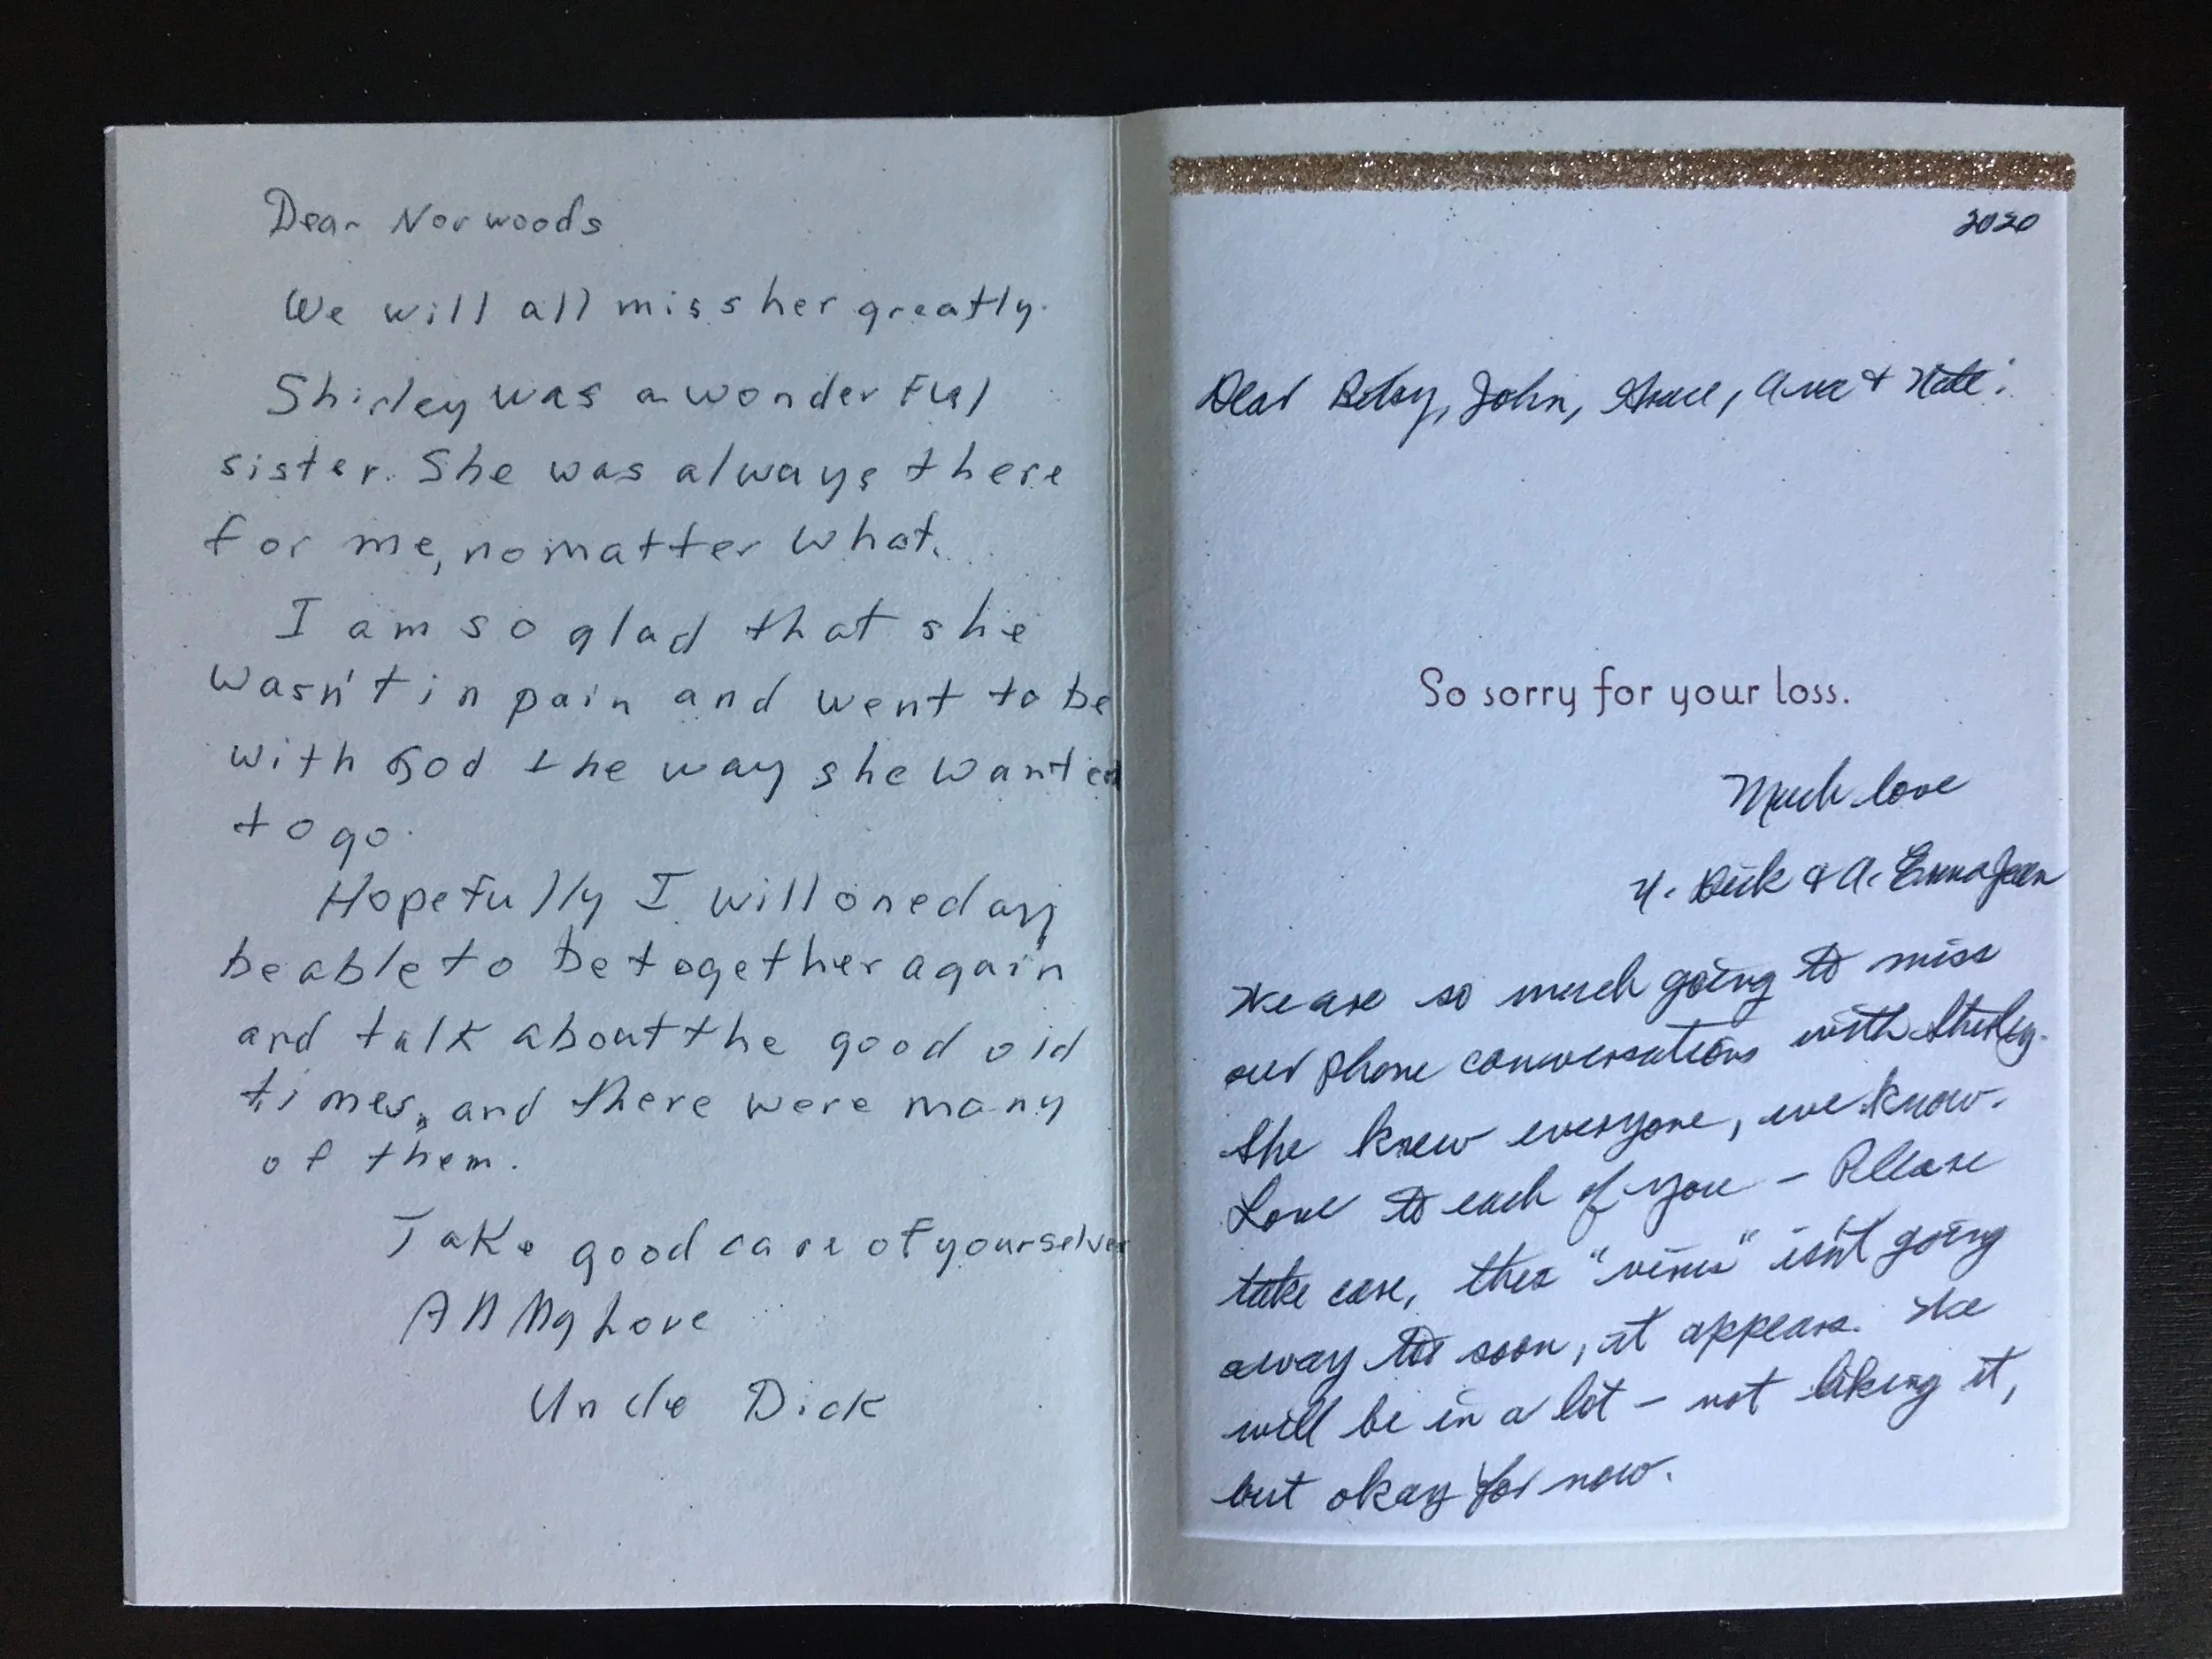 Dear Norwoods
We will all miss her greatly.
Shirley was a wonderful
sister. She was always there
for me, no matter what.
I am so glad that she
wasn't in pain and went to be
with God the way she wanted
to go.
Hopefully I will one day
be able to be together again
and talk about the good old
times, and there were many
of them.
Take good care of yourselves
All My Love
Uncle Dick
2020
Dear Betsy, John, Grace, Ava & Nate:
So sorry for your loss.
Much love
U. Dick & A. Emma Jean
We are so much going to miss
our phone conversations with Shirley.
She knew everyone, we know.
Love to each of you - Please
take care, this "virus" isn't going
away too soon, it appears. We
will be in a lot - not liking it,
but okay for now.